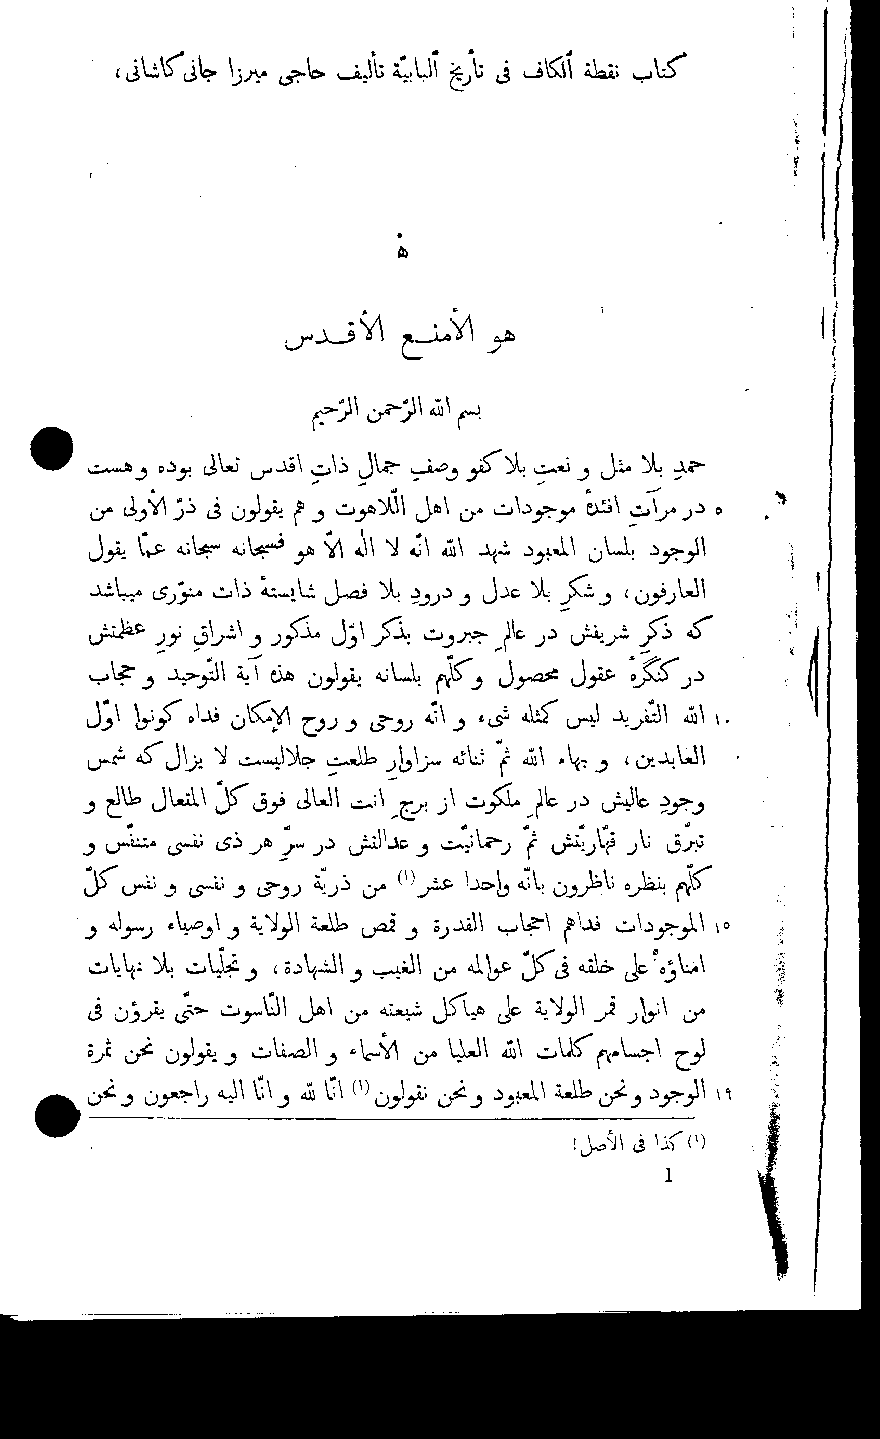 کتاب نقطة ٱلکاف فی تأریخ ٱلبابیّة تألیف حاجی میرزا جانی کاشانی،
هٰ
هو الأمنع الأقدس
بسم الله الرّحمن الرّحیم
حمدِ بلا مثل و نعتِ بلا کفو وصفِ جمالِ ذاتِ اقدس تعالی بوده و هست
٥ در مرآتِ افئدهٔ موجودات من اهل اللّاهوت و هم یقولون فی ذرّ الأولی من
الوجود بلسان المعبود شهد الله انّه لا اله الّا هو فسبحانه سبحانه عمّا یقول
العارفون، و شکرِ بلا عدل و درودِ بلا فصل شایستهٔ ذات منوّری میباشد
که ذکرِ شریفش در عالمِ جبروت بذکر اوّل مذکور و اشراقِ نورِ عظمتش
در کنگرهٔ عقول محصول و کلّهم بلسانه یقولون هذه آیة التّوحید و حجاب
١٠ الله التّفرید لیس کمثله شیء و انّه روحی و روح الإمکان فداه کونوا اوّل
العابدین، و بهاء الله ثمّ ثنائه سزاوارِ طلعتِ جلالیست لا یزال که شمس
وجودِ عالیش در عالمِ ملکوت از برجِ انت العالی فوق کلّ المتعال طالع و
تبرّق نار قهّاریّتش ثمّ رحمانیّت و عدالتش در سرّ هر ذی نفسی متنفّس و
کلّهم بنظره ناظرون بانّه واحدا عشر (١) من ذریّة روحی و نفسی و نفس کلّ
١٥ الموجودات فداهم احجاب القدرة و قمص طلعة الولایة و اوصیاء رسوله و
امناؤه علی خلقه فی کلّ عوالمه من الغیب و الشهادة، و تجلّیات بلا نهایات
من انوار قمر الولایة علی هیاکل شیعته من اهل النّاسوت حتّی یقرؤن فی
لوح اجسامهم کلمات الله العلیا من الأسماء و الصفات و یقولون نحن ثمرة
١٩ الوجود و نحن طلعة المعبود و نحن نقولون (١) انّا لله و انّا الیه راجعون و نحن
(١) کذا فی الأصل!
1